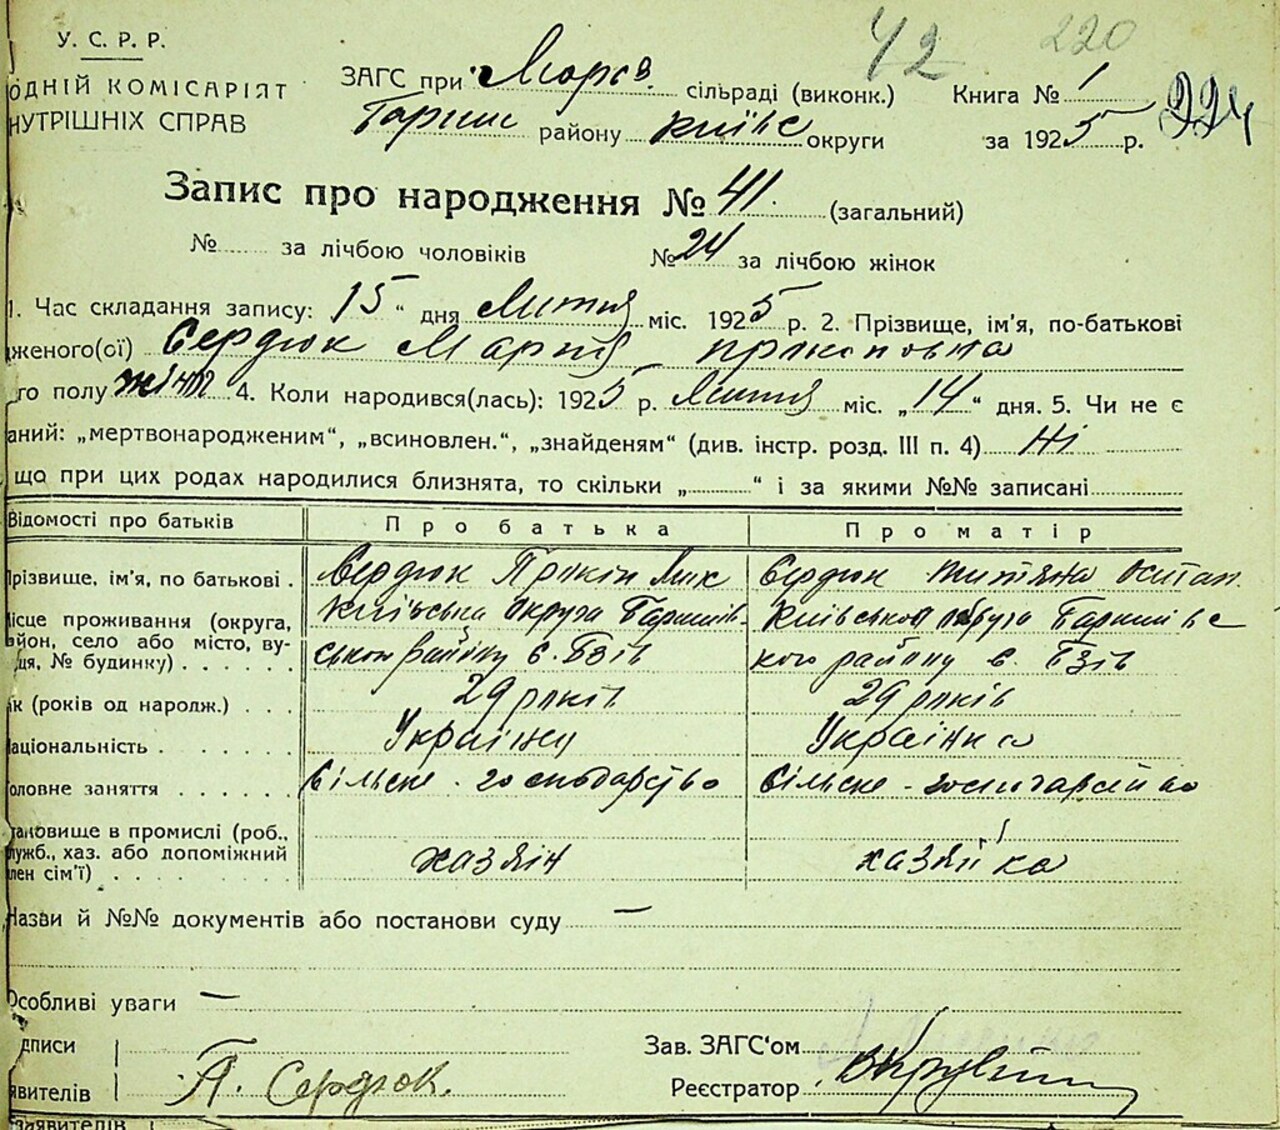 У. С. Р. Р.
ОДНІЙ КОМІСАРІЯТ
НУТРІШНІХ СПРАВ
42
220
224
ЗАГС при Морів. сільраді (виконк.) Книга № 1
Бариш району Київс округи за 1925 р.
Запис про народження № 41. (загальний)
№ за лічбою чоловіків № 24 за лічбою жінок
1. Час складання запису: 15 “ дня Лютня міс. 1925 р. 2. Прізвище, ім’я, по-батькові
дженого(ої) Сердюк Марія Прокоповна
го полу жіноч 4. Коли народився(лась): 1925 р. Лютня міс. „14“ дня. 5. Чи не є
аний: „мертвонародженим“, „всиновлен.“, „знайденям“ (див. інстр. розд. III п. 4) Ні
що при цих родах народилися близнята, то скільки „ “ і за якими №№ записані
Відомості про батьків Про батька Про матір
Прізвище, ім’я, по батькові . Сердюк Прокіп Мик Сердюк Титяна Остап.
ісце проживання (округа, Київська округа Баришів- Київської округи Баришівс
йон, село або місто, ву- ської району с. Бзів кого району с. Бзів
ця, № будинку) . . . . . .
ік (років од народж.) . . . 29 років 29 років
аціональність . . . . . . . Українец Українка
оловне заняття . . . . . . Сільске - господарство Сільске - господарство
тановище в промислі (роб.,
лужб., хаз. або допоміжний хазяін хазяйка
лен сім’ї) . . . . . . . . .
Назви й №№ документів або постанови суду —
Особливі уваги —
дписи Зав. ЗАГС‘ом
явителів П. Сердюк. Реєстратор
заявителів